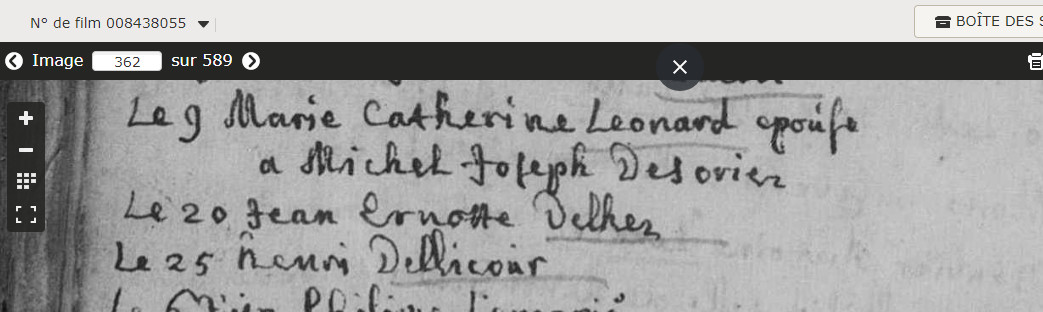 N° de film 008438055
BOÎTE DES
Image 362 sur 589
Le 9 Marie Catherine Leonard epouse
a Michel Joseph Desoriez
Le 20 Jean Ernotte Delhez
Le 25 henri Dellicour
Philippe